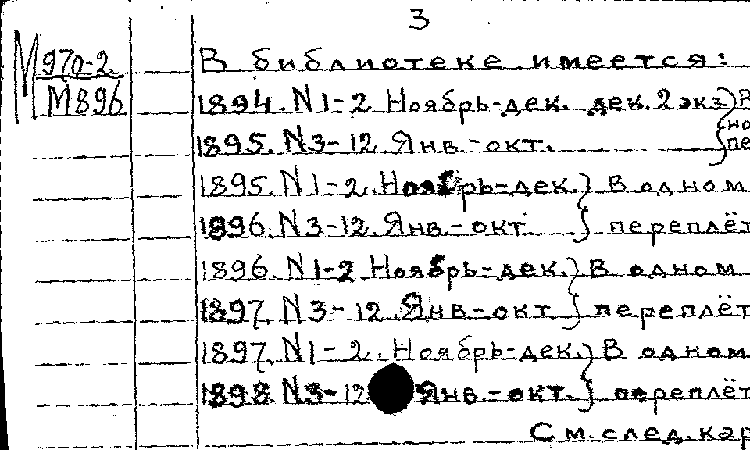 3
М 970-2
М896
В библиотеке имеется:
1894. N 1-2 Ноябрь-дек. дек. 2 экз.
1895. N 3-12 Янв.-окт.
1895. N 1-2. Ноябрь-дек. } В одном
1896. N 3-12. Янв.-окт. } переплёт
1896. N 1-2 Ноябрь-дек. } В одном
1897. N 3-12. Янв.-окт } переплёт
1897. N 1-2. Ноябрь-дек. } В одном
1898. N 3-12 Янв.-окт. } переплёт
См. след. кар